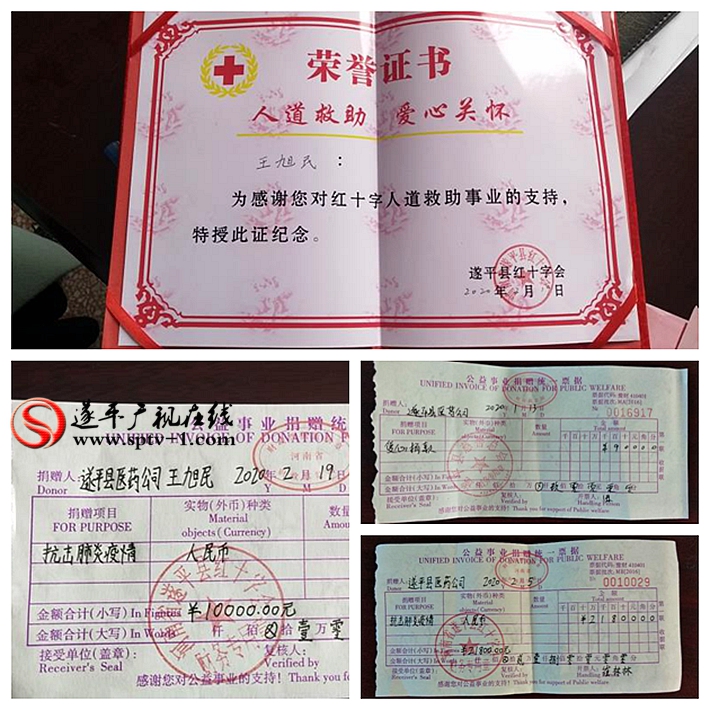 荣誉证书
人道救助 爱心关怀
王旭民：
为感谢您对红十字人道救助事业的支持，
特授此证纪念。
遂平县红十字会
2020年2月 日
遂平广视在线
www.sptv.cn
公益事业捐赠统
UNIFIED INVOICE OF DONATION FOR
河南省
捐赠人 遂平县医药公司 王旭民 2020年2月19日
Donor Y M D
捐赠项目 实物(外币)种类 数量
FOR PURPOSE Material objects(Currency) Amount
抗击肺炎疫情 人民币
金额合计(小写) In Figures ¥10000.00元
金额合计(大写) In Words 仟 佰 拾 壹万零
接受单位(盖章): 复核人:
Receiver's Seal Verified by
感谢您对公益事业的支持! Thank you for
遂平县红十字会
财务专用章
公益事业捐赠统一票据
UNIFIED INVOICE OF DONATION FOR PUBLIC WELFARE
捐赠人: 遂平县医药公司 2020年1月13日
Donor № 0016917
捐赠项目 实物(外币)种类 金额
FOR PURPOSE Material objects(Currency) Total amount
千百十万千百十元角分
金额合计(小写)
金额合计(大写)
接受单位(盖章): 复核人: 开票人:
Receiver's Seal Verified by Handling Person
感谢您对公益事业的支持! Thank you for support of Public welfare!
公益事业捐赠统一票据
UNIFIED INVOICE OF DONATION FOR PUBLIC WELFARE
捐赠人: 遂平县医药公司 2020年2月5日
Donor № 0010029
捐赠项目 实物(外币)种类 金额
FOR PURPOSE Material objects(Currency) Total amount
千百十万千百十元角分
抗击肺炎疫情 人民币 ¥2180000
金额合计(小写) ¥21800.00元
金额合计(大写)
接受单位(盖章): 复核人: 开票人:
Receiver's Seal Verified by Handling Person
感谢您对公益事业的支持! Thank you for support of Public welfare!